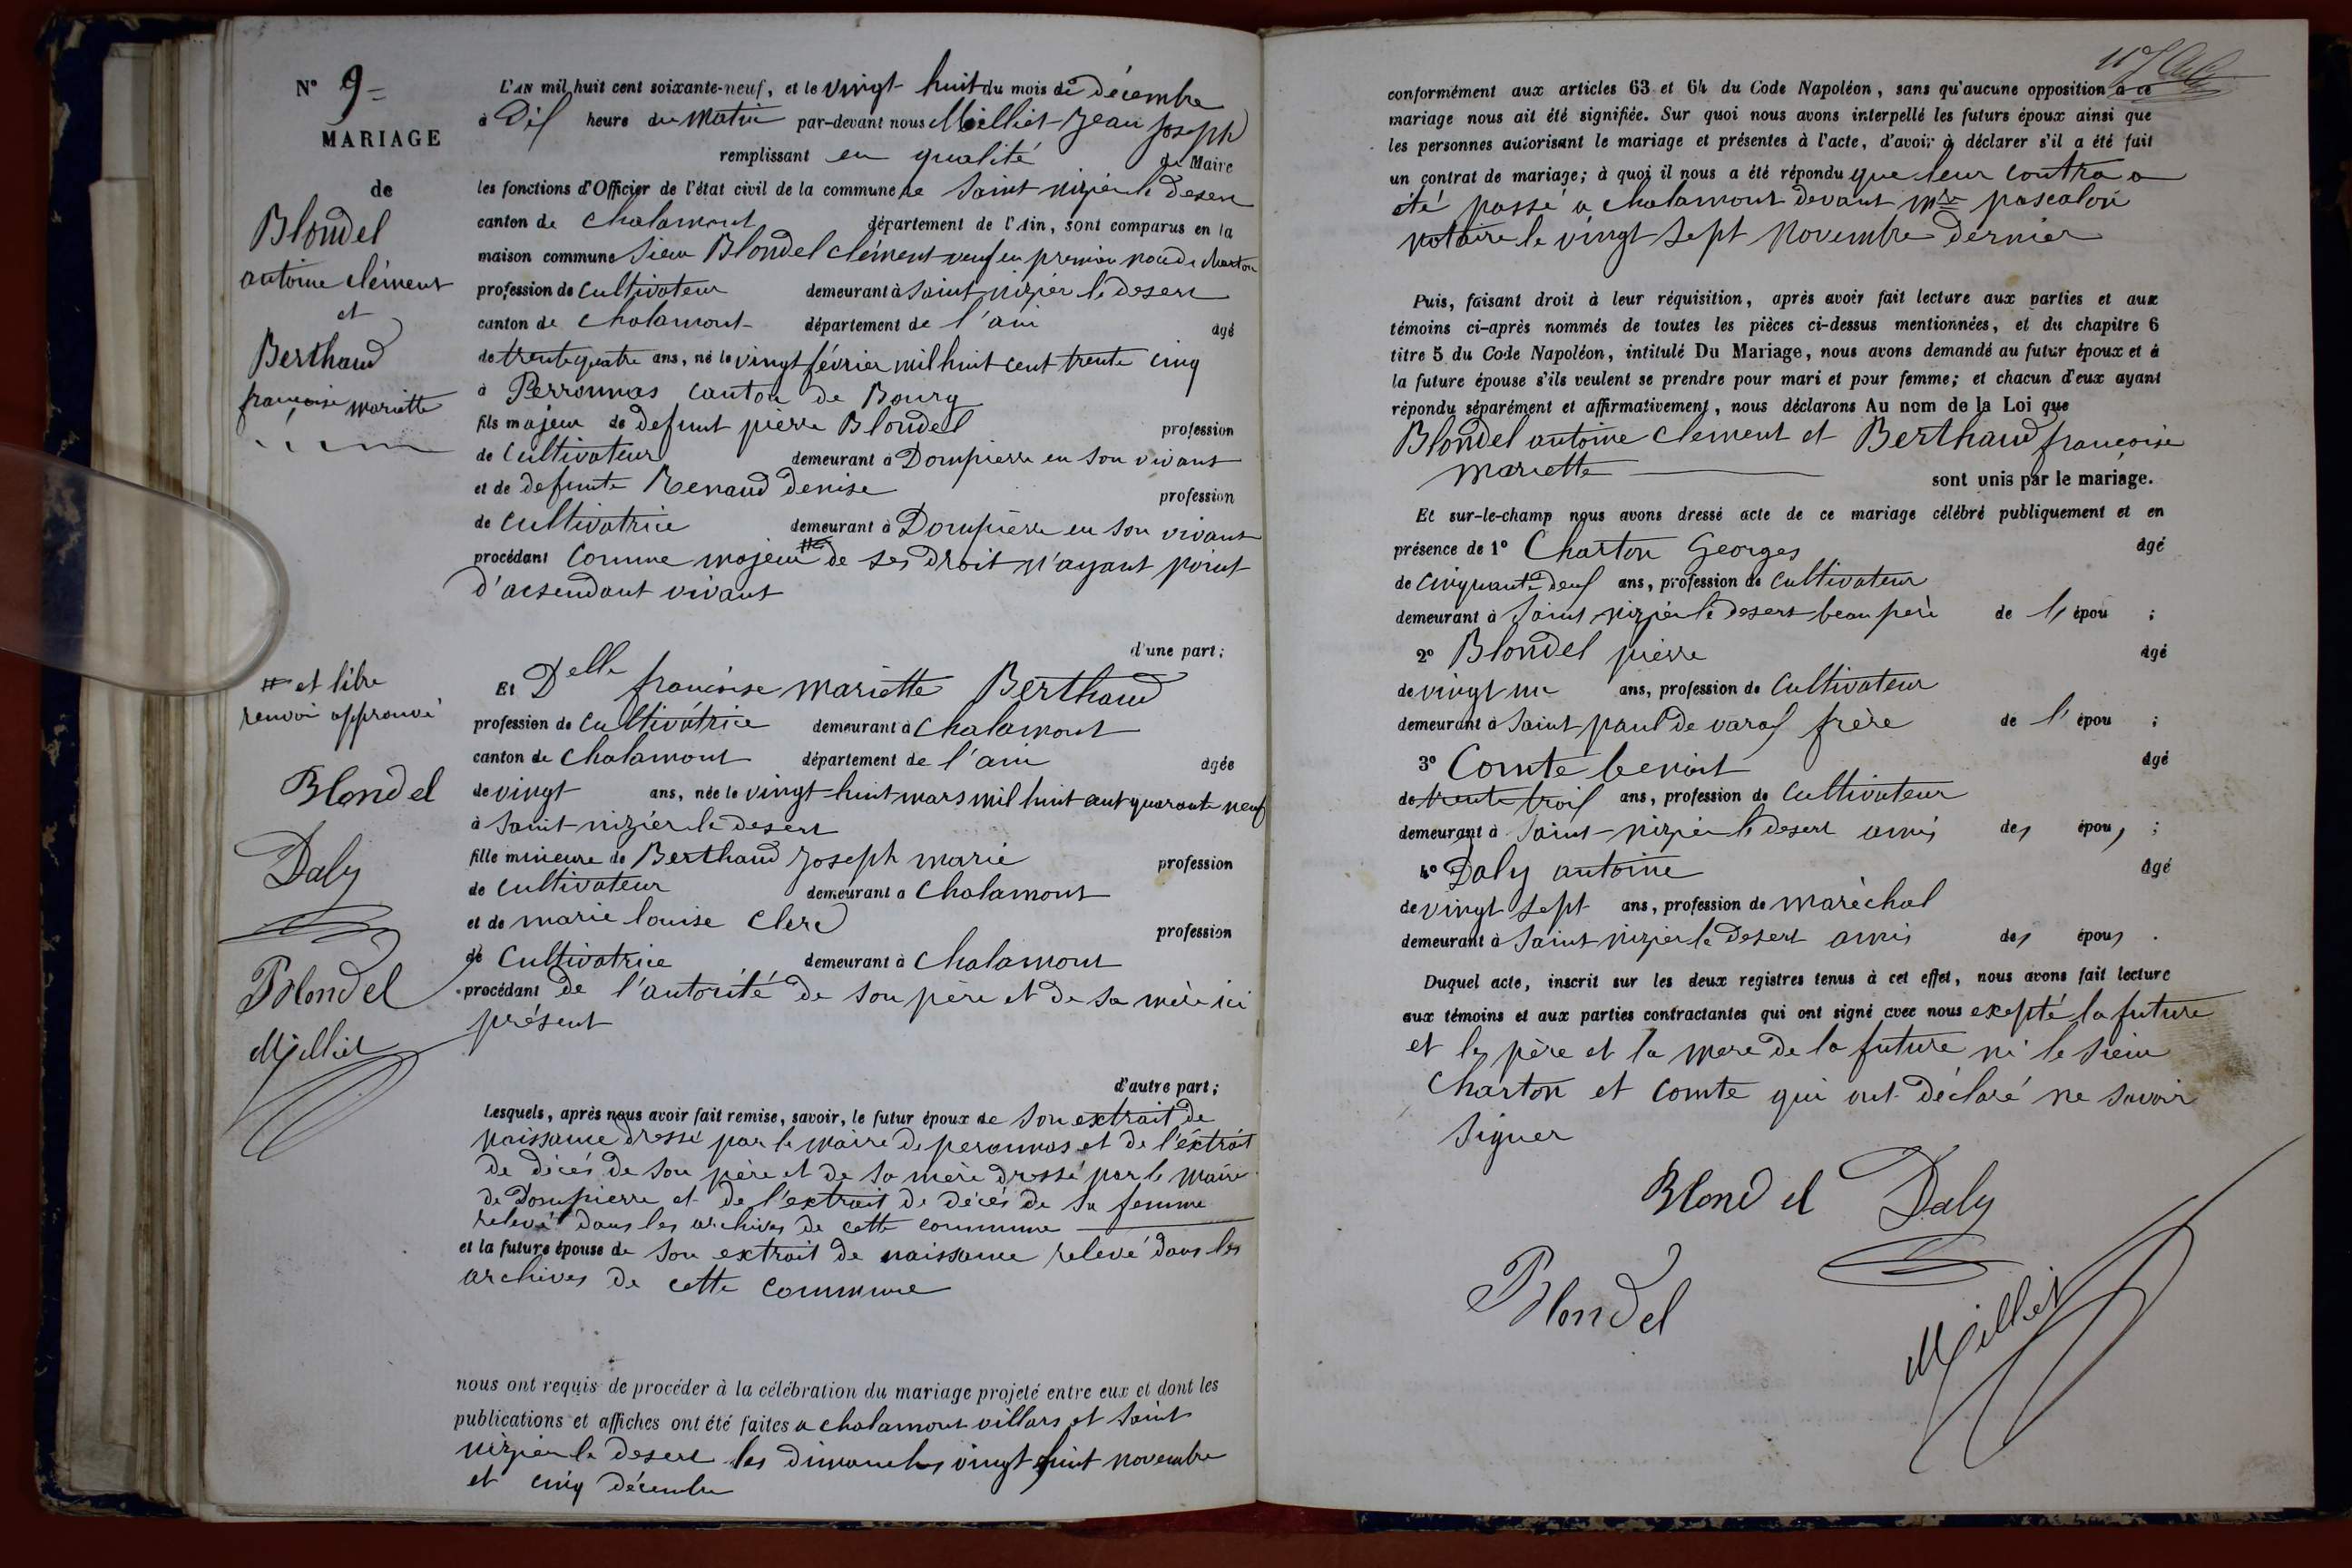 N° 9=
MARIAGE
de
Blondel
antoine clément
et
Berthaud
françoise mariette
L'AN mil huit cent soixante-neuf, et le vingt huit du mois de décembre
à Dix heure du matin par-devant nous Milliet Jean Joseph
remplissant en qualité de Maire
les fonctions d'Officier de l'état civil de la commune de Saint nizier le desert
canton de Chalamont département de l'Ain, sont comparus en la
maison commune Sieur Blondel clément veuf en premier noce de charton
profession de Cultivateur demeurant à Saint nizier le desert
canton de Chalamont département de l'ain âgé
de trente quatre ans, né le vingt février mil huit cent trente cinq
à Perronnas canton de Bourg
fils majeur de defunt pierre Blondel profession
de Cultivateur demeurant à Dompierre en son vivant
et de defunte Renaud denise profession
de Cultivatrice demeurant à Dompierre en son vivant
procédant Comme majeur # de ses droit n'ayant point
d'acsendant vivant
d'une part;
# et libre
renvoi approuvé
Blondel
Daly
Blondel
Milliet
Et Delle françoise mariette Berthaud
profession de Cultivatrice demeurant à Chalamont
canton de Chalamont département de l'ain âgée
de vingt ans, née le vingt-huit mars mil huit cent quarante neuf
à Saint nizier le desert
fille mineure de Berthaud Joseph marie profession
de Cultivateur demeurant à Chalamont
et de marie louise Clerc profession
de Cultivatrice demeurant à Chalamont
procédant de l'autorité de son père et de sa mère ici
présent
d'autre part;
Lesquels, après nous avoir fait remise, savoir, le futur époux de son extrait de
naissance dressé par le maire de peronnas et de l'extrait
de décés de son père et de sa mère dressé par le maire
de Dompierre et de l'extrait de décés de sa femme
relevé dans les archives de cette commune
et la future épouse de son extrait de naissance relevé dans les
archives de cette commune
nous ont requis de procéder à la célébration du mariage projeté entre eux et dont les
publications et affiches ont été faites a chalamont villars et Saint
nizier le desert les dimanches vingt huit novembre
et cinq décembre
conformément aux articles 63 et 64 du Code Napoléon, sans qu'aucune opposition à ce
mariage nous ait été signifiée. Sur quoi nous avons interpellé les futurs époux ainsi que
les personnes autorisant le mariage et présentes à l'acte, d'avoir à déclarer s'il a été fait
un contrat de mariage; à quoi il nous a été répondu que leur contra a
été passé a chalamont devant mre pascalon
notaire le vingt sept novembre dernier
Puis, faisant droit à leur réquisition, après avoir fait lecture aux parties et aux
témoins ci-après nommés de toutes les pièces ci-dessus mentionnées, et du chapitre 6
titre 5 du Code Napoléon, intitulé Du Mariage, nous avons demandé au futur époux et à
la future épouse s'ils veulent se prendre pour mari et pour femme; et chacun d'eux ayant
répondu séparément et affirmativement, nous déclarons Au nom de la Loi que
Blondel antoine clement et Berthaud françoise
mariette
sont unis par le mariage.
Et sur-le-champ nous avons dressé acte de ce mariage célébré publiquement et en
présence de 1° Charton Georges âgé
de cinquante deux ans, profession de Cultivateur
demeurant à Saint nizier le desert beau père de l'épou ;
2° Blondel pierre âgé
de vingt un ans, profession de Cultivateur
demeurant à Saint paul de varax frère de l'épou ;
3° Comte benoit âgé
de trente trois ans, profession de Cultivateur
demeurant à Saint nizier le desert amis des épous ;
4° Daly antoine âgé
de vingt sept ans, profession de maréchal
demeurant à Saint nizier le Desert amis des épous .
Duquel acte, inscrit sur les deux registres tenus à cet effet, nous avons fait lecture
aux témoins et aux parties contractantes qui ont signé avec nous exepté la future
et le père et la mere de la future ni le sieur
Charton et Comte qui ont déclaré ne savoir
signer
Blondel Daly
Blondel
Milliet